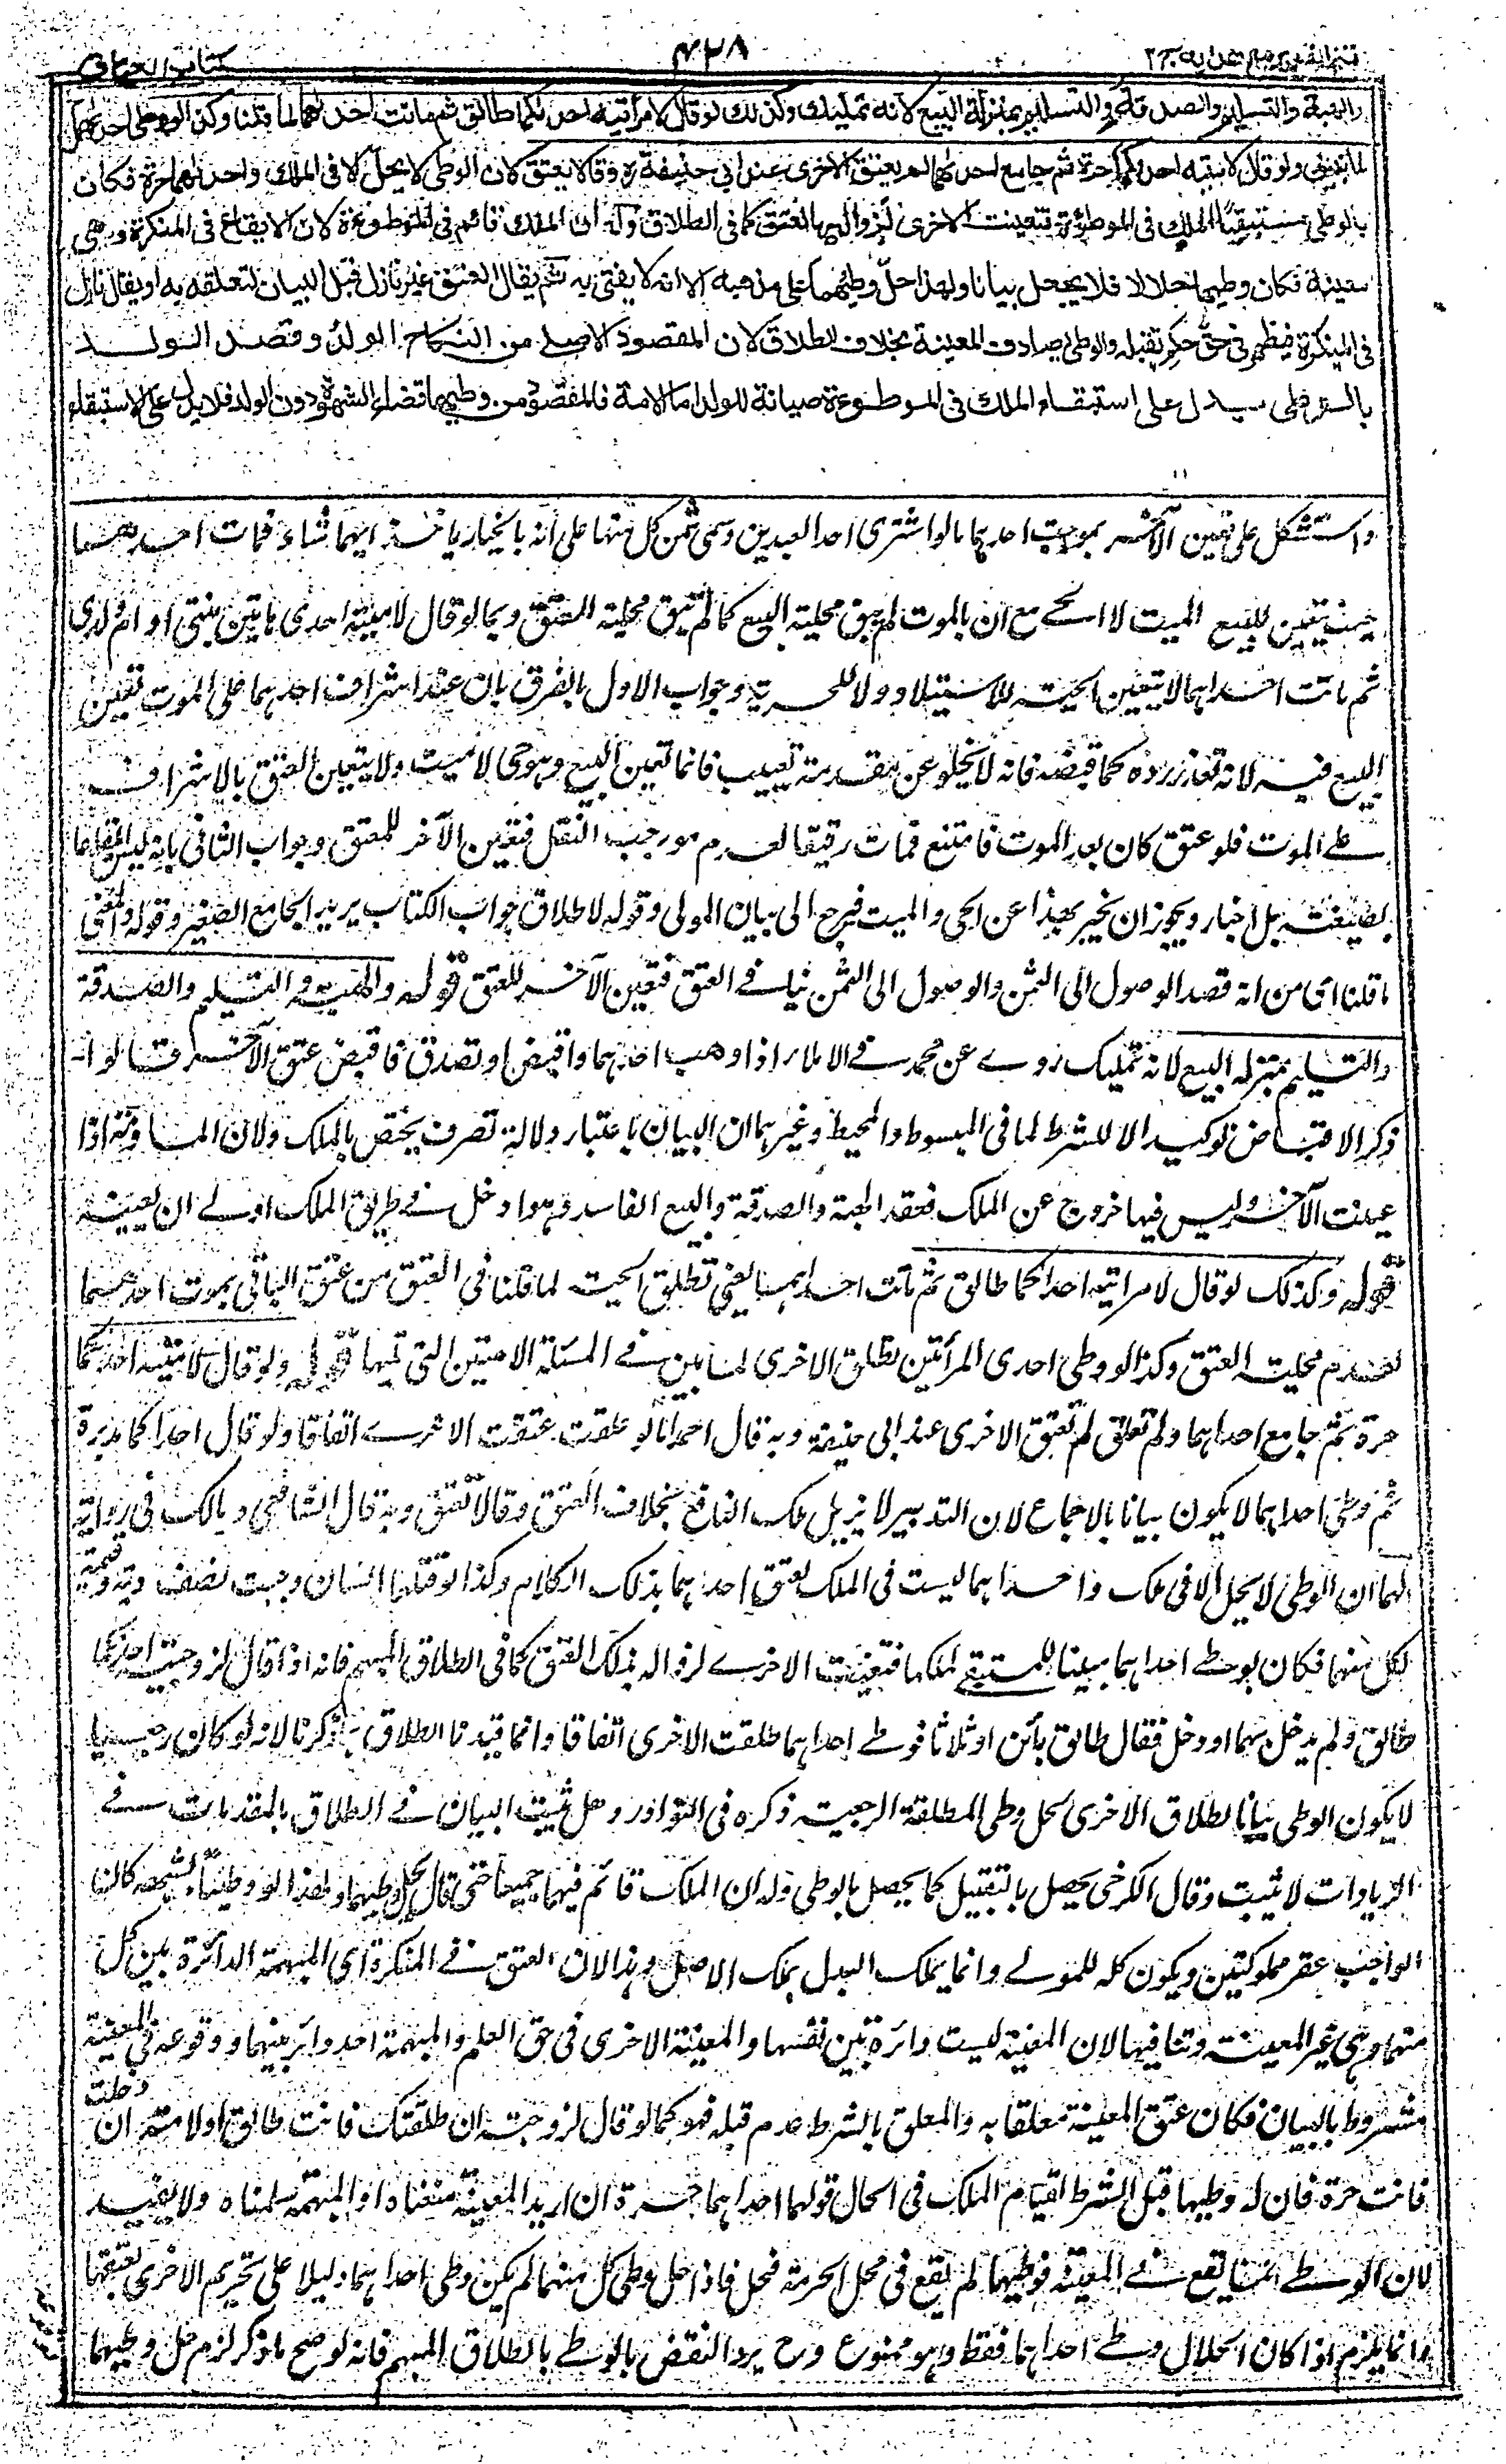 فتح القدير مع هدايه ج ٢
٤٢٨
كتاب العتاق
والهبة والتسليم والصدقة والتسليم بمنزلة البيع لانه تمليك وكذلك لو قال لامرأتيه احدىكما طالق ثم ماتت احداهما لما قلنا وكذا لو وطى احداهما
لما نبين ولو قال لامتيه احدىكما حرة ثم جامع احداهما لم يعتق الاخرى عند ابي حنيفة ره وقالا يعتق لان الوطى لا يحل الا فى الملك واحداهما حرة فكان
بالوطى مستبقيا الملك فى الموطوءة فتعينت الاخرى لزواله بالعتق كما فى الطلاق وله ان الملك قائم فى الموطوءة لان الايقاع فى المنكرة وهى
معينة فكان وطيها حلالا فلا يجعل بيانا ولهذا حل وطيهما على مذهبه الا انه لا يفتى به ثم يقال العتق غير نازل قبل البيان لتعلقه به او يقال نازل
فى المنكرة فيظهر فى حق حكم تقبله والوطى يصادف المعينة بخلاف الطلاق لان المقصود الاصلى من النكاح الولد وقصد الولد
بالوطى يدل على استبقاء الملك فى الموطوءة صيانة للولد اما الامة فالمقصود من وطيها قضاء الشهوة دون الولد فلا يدل على الاستبقاء
واستشكل على تعين الآخر بموت احدهما بما لو اشترى احد العبدين وسمى ثمن كل منهما على انه بالخيار ياخذ ايهما شاء فمات احدهما
حيث يتعين للبيع الميت لا الحى مع ان بالموت لم يبق محلية البيع كما لم تبق محلية العتق وبما لو قال لامتيه احدى هاتين بنتى او ام ولدى
ثم ماتت احداهما لا يتعين الحية للاستيلاد ولا للحرية وجواب الاول بالفرق بان عند اشراف احدهما على الموت تعين
البيع فيه لانه تعذر رده كما قبضه فانه لا يخلو عن مقدمة تعييب فانما تعين البيع وهو حى لا ميت ولا يتعين العتق بالاشراف
على الموت فلو عتق كان بعد الموت فامتنع فمات رقيقا لعدم موجب النقل فتعين الآخر للعتق وجواب الثانى بانه ليس ايقاعا
بصيغته بل اخبار ويجوز ان يخبر بهذا عن الحى والميت فيرجع الى بيان المولى وقوله لاطلاق جواب الكتاب يريد الجامع الصغير وقوله والمعنى
ما قلنا اى من انه قصد الوصول الى الثمن والوصول الى الثمن ينافى العتق فتعين الآخر للعتق قوله والهبة والتسليم والصدقة
والتسليم بمنزلة البيع لانه تمليك روى عن محمد فى الاملاء اذا وهب احدهما واقبض او تصدق فاقبض عتق الآخر قالوا
ذكر الاقباض توكيدا لا للشرط لما فى المبسوط والمحيط وغيرهما ان البيان باعتبار دلالة تصرف يختص بالملك ولان المساومة اذا
عينت الآخر وليس فيها خروج عن الملك فعقد الهبة والصدقة والبيع الفاسد وهو ادخل فى طريق الملك اولى ان يعينه
قوله وكذلك لو قال لامرأتيه احداكما طالق ثم ماتت احداهما يعنى تطلق الحية لما قلنا فى العتق من عتق الباقى بموت احدهما
لعدم محلية العتق وكذا لو وطى احدى المرأتين تطلق الاخرى لما نبين فى المسئلة الامتين التى تليها قوله ولو قال لامتيه احداكما
حرة ثم جامع احداهما ولم تعلق لم تعتق الاخرى عند ابى حنيفة وبه قال احمد اما لو علقت عتقت الاخرى اتفاقا ولو قال احداكما مدبرة
ثم وطى احداهما لا يكون بيانا بالاجماع لان التدبير لا يزيل ملك المنافع بخلاف العتق وقالا تعتق وبه قال الشافعى ومالك فى رواية
لهما ان الوطى لا يحل الا فى ملك واحداهما ليست فى الملك لعتق احداهما بذلك الكلام وكذا لو قتلهما انسان وجبت نصف دية وقيمة
لكل منهما فكان بوطى احداهما مبينا للمستبقى ملكها فتعينت الاخرى لزواله بذلك العتق كما فى الطلاق المبهم فانه اذا قال لزوجتيه احداكما
طالق ولم يدخل بهما او دخل فقال طالق بائن او ثلاثا فوطى احداهما طلقت الاخرى اتفاقا وانما قيدنا الطلاق بما ذكرنا لانه لو كان رجعيا
لا يكون الوطى بيانا لطلاق الاخرى لحل وطى المطلقة الرجعية ذكره فى النوادر وهل يثبت البيان فى الطلاق بالمقدمات فى
الزيادات لا يثبت وقال الكرخى يحصل بالتقبيل كما يحصل بالوطى وله ان الملك قائم فيهما جميعا حتى قال يحل وطيهما ولهذا لو وطئتا بشبهة كان
الواجب عقر مملوكتين ويكون كله للمولى وانما يملك البدل بملك الاصل وهذا لان العتق فى المنكرة اى المبهمة الدائرة بين كل
منهما وهى غير المعينة وتنافيها لان المعينة ليست دائرة بين نفسها والمعينة الاخرى فى حق العلم والمبهمة احد دائر بينهما ووقوعه فى المعينة
مشروط بالبيان فكان عتق المعينة معلقا به والمعلق بالشرط عدم قبله فهو كما لو قال لزوجته ان طلقتك فانت طالق او لامته ان دخلت
فانت حرة فان له وطيها قبل الشرط لقيام الملك فى الحال قولهما احداهما حرة ان اريد المعينة منعناه او المبهمة سلمناه ولا يفيد
لان الوطى انما يقع فى المعينة فوطيها لم يقع فى محل الحرمة فحل فاذا حل وطى كل منهما لم يكن وطى احداهما دليلا على تحريم الاخرى بعتقها
وانما يلزم اذا كان الحلال وطى احداهما فقط وهو ممنوع وح يرد النقض بالوطى بالطلاق المبهم فانه لو صح ما ذكر لزم حل وطيهما